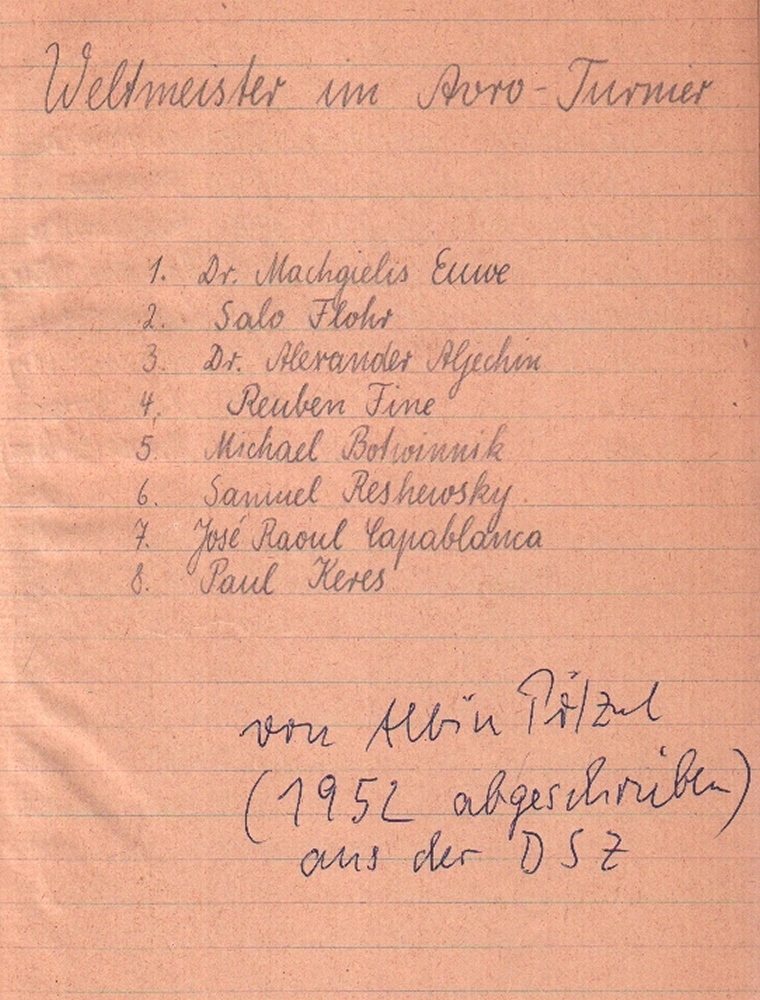 Weltmeister im Avro-Turnier
1. Dr. Machgielis Euwe
2. Salo Flohr
3. Dr. Alexander Aljechin
4. Reuben Fine
5. Michael Botwinnik
6. Samuel Reshewsky
7. José Raoul Capablanca
8. Paul Keres
von Albin Pötzl
(1952 abgeschrieben)
aus der DSZ